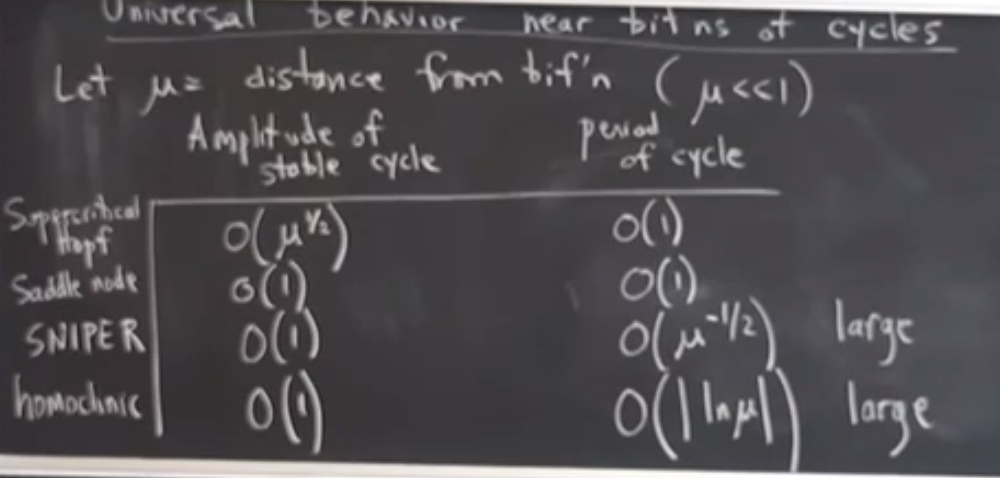 Universal behavior near bif'ns of cycles
Let μ = distance from bif'n (μ<<1)
Amplitude of stable cycle period of cycle
Supercritical Hopf O(μ^1/2) O(1)
Saddle node O(1) O(1)
SNIPER O(1) O(μ^-1/2) large
homoclinic O(1) O(|ln μ|) large